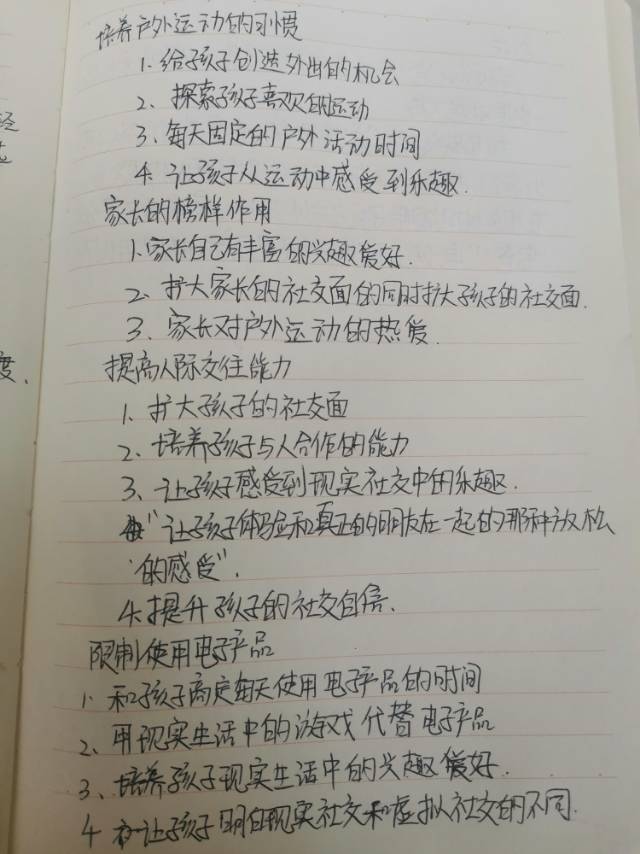 培养户外运动的习惯
1. 给孩子创造外出的机会
2、探索孩子喜欢的运动
3、每天固定的户外活动时间
4. 让孩子从运动中感受到乐趣.
家长的榜样作用
1. 家长自己有丰富的兴趣爱好.
2、扩大家长的社交面的同时扩大孩子的社交面.
3、家长对户外运动的热爱.
提高人际交往能力
1、扩大孩子的社交面
2、培养孩子与人合作的能力
3、让孩子感受到现实社交中的乐趣.
"让孩子体验和真正的朋友在一起的那种放松
的感受".
4. 提升孩子的社交自信.
限制使用电子产品
1、和孩子商定每天使用电子产品的时间
2、用现实生活中的游戏代替电子产品
3、培养孩子现实生活中的兴趣爱好.
4 让孩子明白现实社交和虚拟社交的不同.
度.